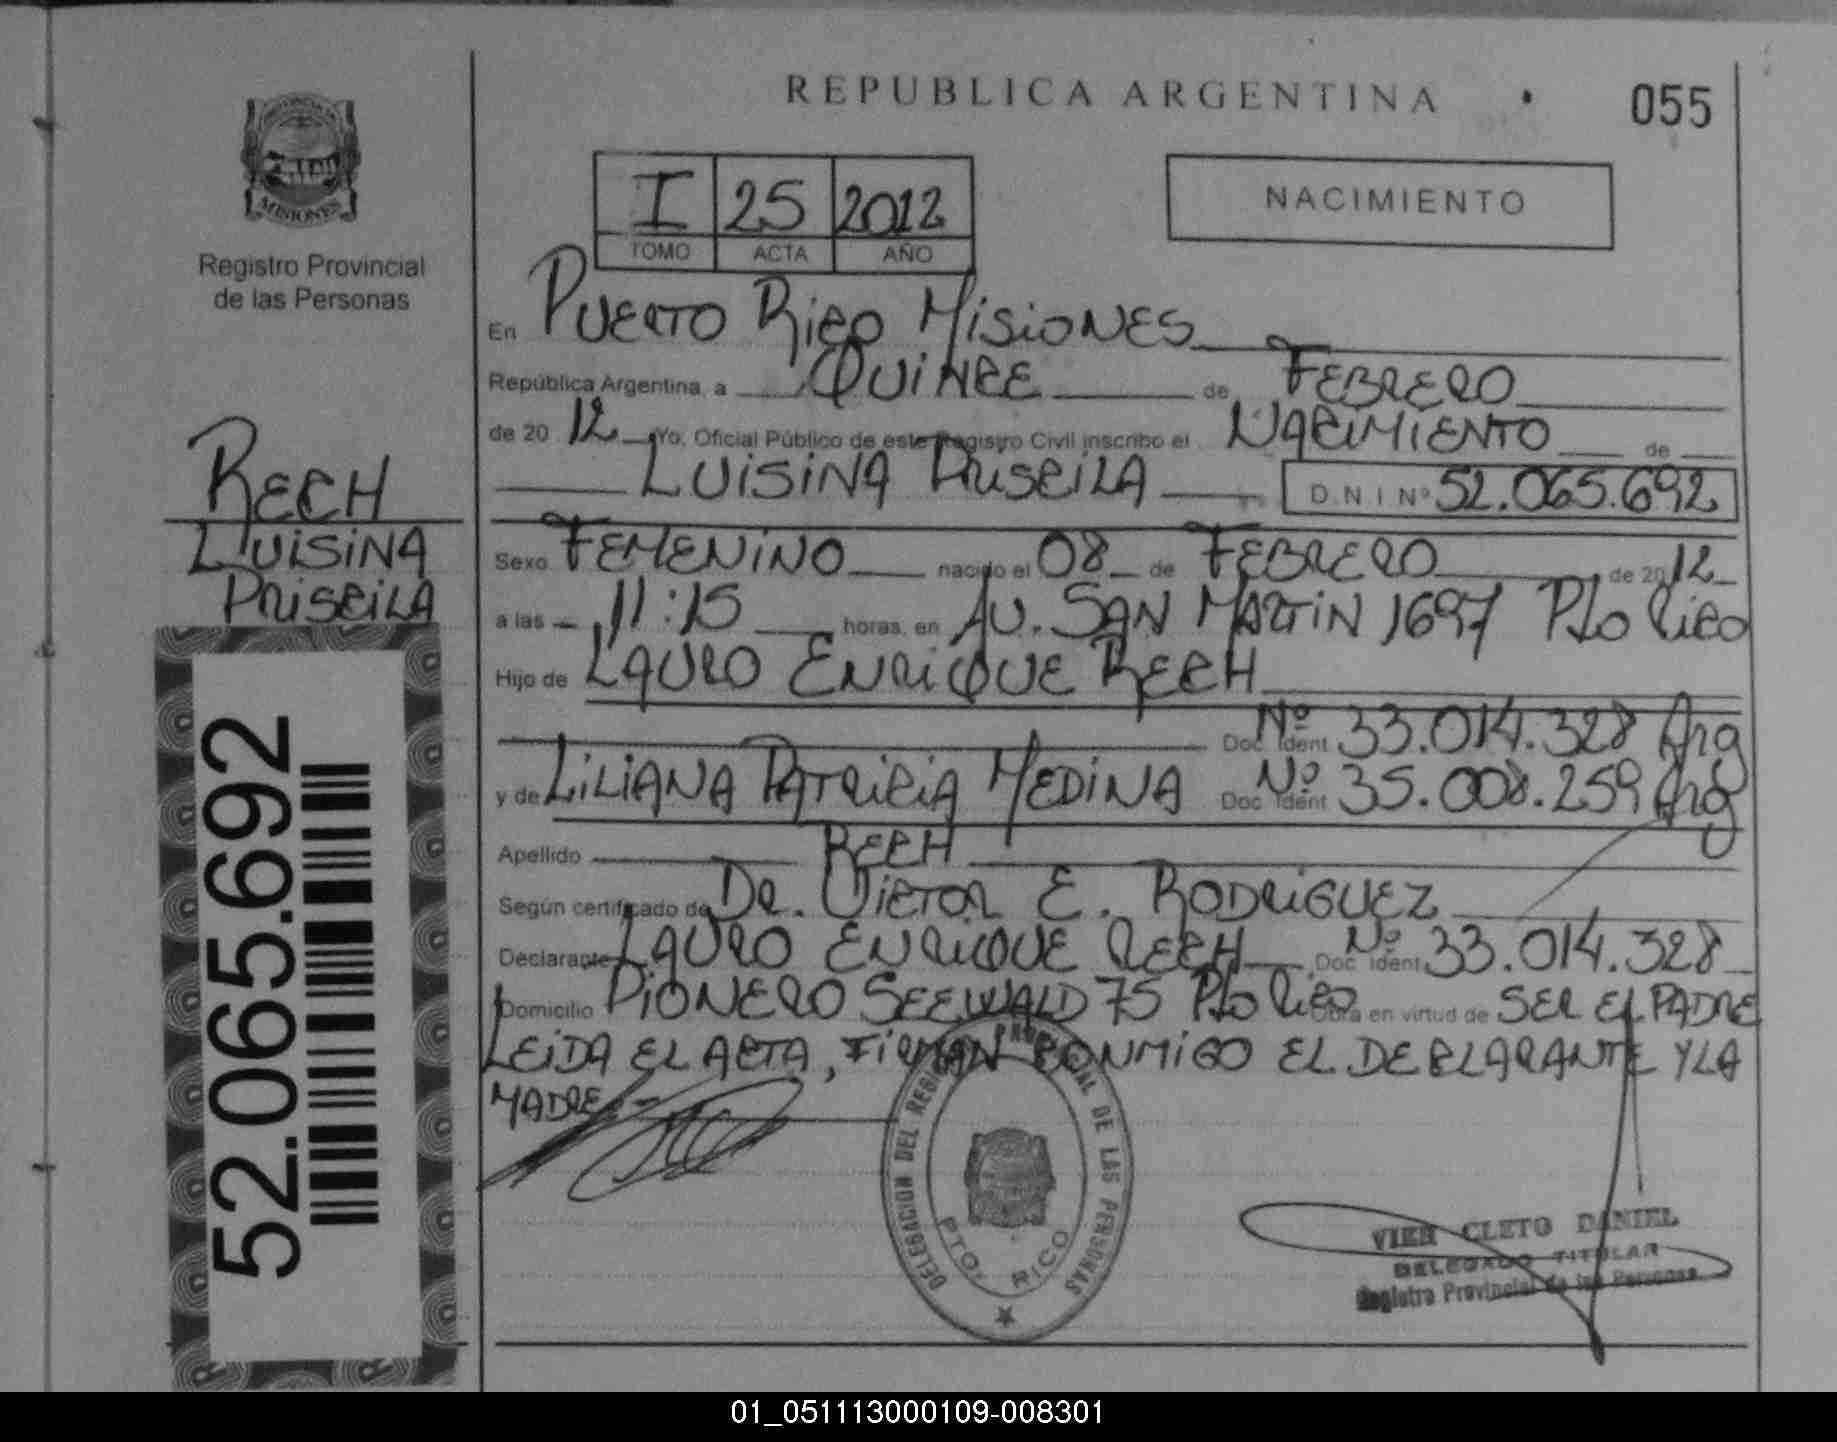 REPUBLICA ARGENTINA
055
MISIONES
Registro Provincial
de las Personas
I 25 2012
TOMO ACTA AÑO
NACIMIENTO
En PUERTO RICO MISIONES
República Argentina, a QUINCE de FEBRERO
de 20 12 Yo, Oficial Público de este Registro Civil inscribo el NACIMIENTO de
LUISINA PRISCILA D.N.I Nº 52.065.692
RECH
LUISINA
PRISCILA
Sexo FEMENINO nacido el 08 de FEBRERO de 20 12
a las 11:15 horas, en AV. SAN MARTIN 1697 Pto RICO
Hijo de LAURO ENRIQUE RECH
Doc. Ident. Nº 33.014.328 Arg
y de LILIANA PATRICIA MEDINA Doc. Ident. Nº 35.008.259 Arg
Apellido RECH
Según certificado de DR. VICTOR E. RODRIGUEZ
Declarante LAURO ENRIQUE RECH Doc. Ident. Nº 33.014.328
Domicilio PIONERO SEEWALD 75 Pto RICO Obra en virtud de SER EL PADRE
LEIDA EL ACTA, FIRMAN CONMIGO EL DECLARANTE Y LA
MADRE.-
52.065.692
DELEGACION DEL REGISTRO PROVINCIAL DE LAS PERSONAS
PTO. RICO
VIER CLETO DANIEL
DELEGADO TITULAR
Registro Provincial de las Personas
01_051113000109-008301